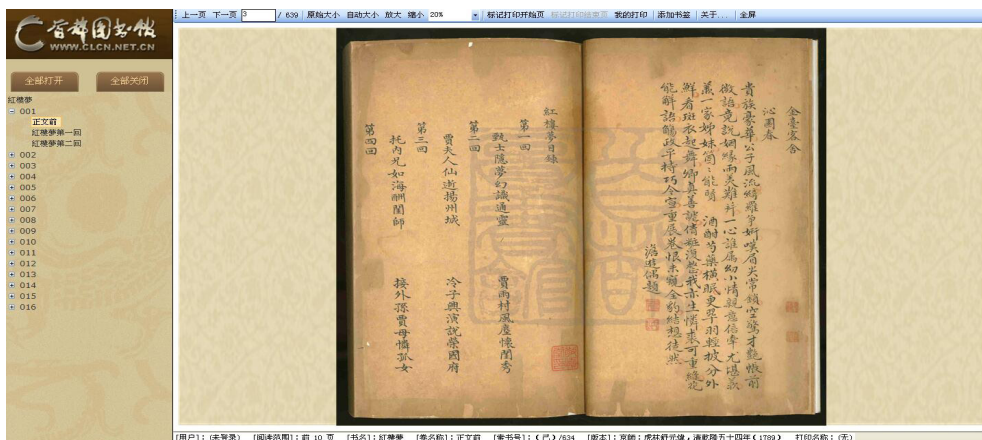 首都图书馆
WWW.CLCN.NET.CN
全部打开 全部关闭
紅樓夢
001
正文前
紅樓夢第一回
紅樓夢第二回
002
003
004
005
006
007
008
009
010
011
012
013
014
015
016
上一页 下一页 3 / 639 原始大小 自动大小 放大 缩小 20% 标记打印开始页 标记打印结束页 我的打印 添加书签 关于... 全屏
金臺客舍
沁園春
貴族豪華公子風流綺羅爭妍嘆眉尖常鎖空勞才艷帳前
微語竟說姻緣兩美難并一心誰屬幼小情親意倍牽尤堪羨
一家姊妹箇:能明 酒酣芍藥橫眠更翠羽輕披分外
鮮看斑衣起舞
紅樓夢目錄
第一回
甄士隱夢幻識通靈 賈雨村風塵懷閨秀
第二回
賈夫人仙逝揚州城 冷子興演說榮國府
第三回
托內兄如海酬閨師 接外孫賈母憐孤女
第四回
[用户]: (未登录) [阅读范围]: 前 10 页 [书名]: 紅樓夢 [卷名称]: 正文前 [索书号]: (己)/634 [版本]: 京師: 虎林舒元煒, 清乾隆五十四年(1789) 打印名称: (无)